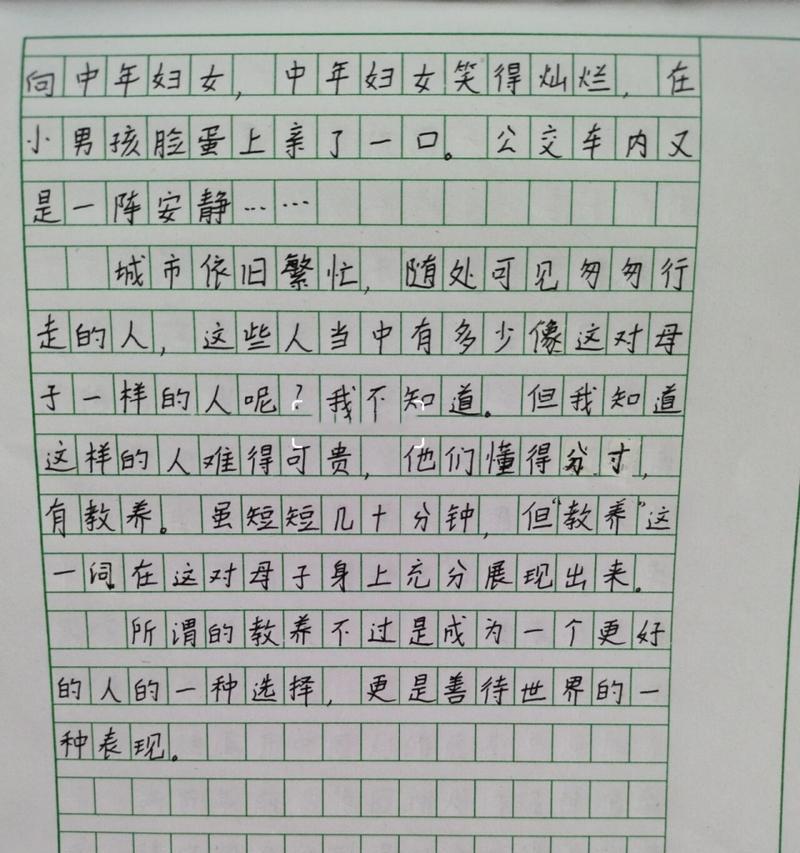 向中年妇女，中年妇女笑得灿烂，在
小男孩脸蛋上亲了一口。公交车内又
是一阵安静……
城市依旧繁忙，随处可见匆匆行
走的人，这些人当中有多少像这对母
子一样的人呢？我不知道。但我知道
这样的人难得可贵，他们懂得分寸，
有教养。虽短短几十分钟，但“教养”这
一词在这对母子身上充分展现出来。
所谓的教养不过是成为一个更好
的人的一种选择，更是善待世界的一
种表现。